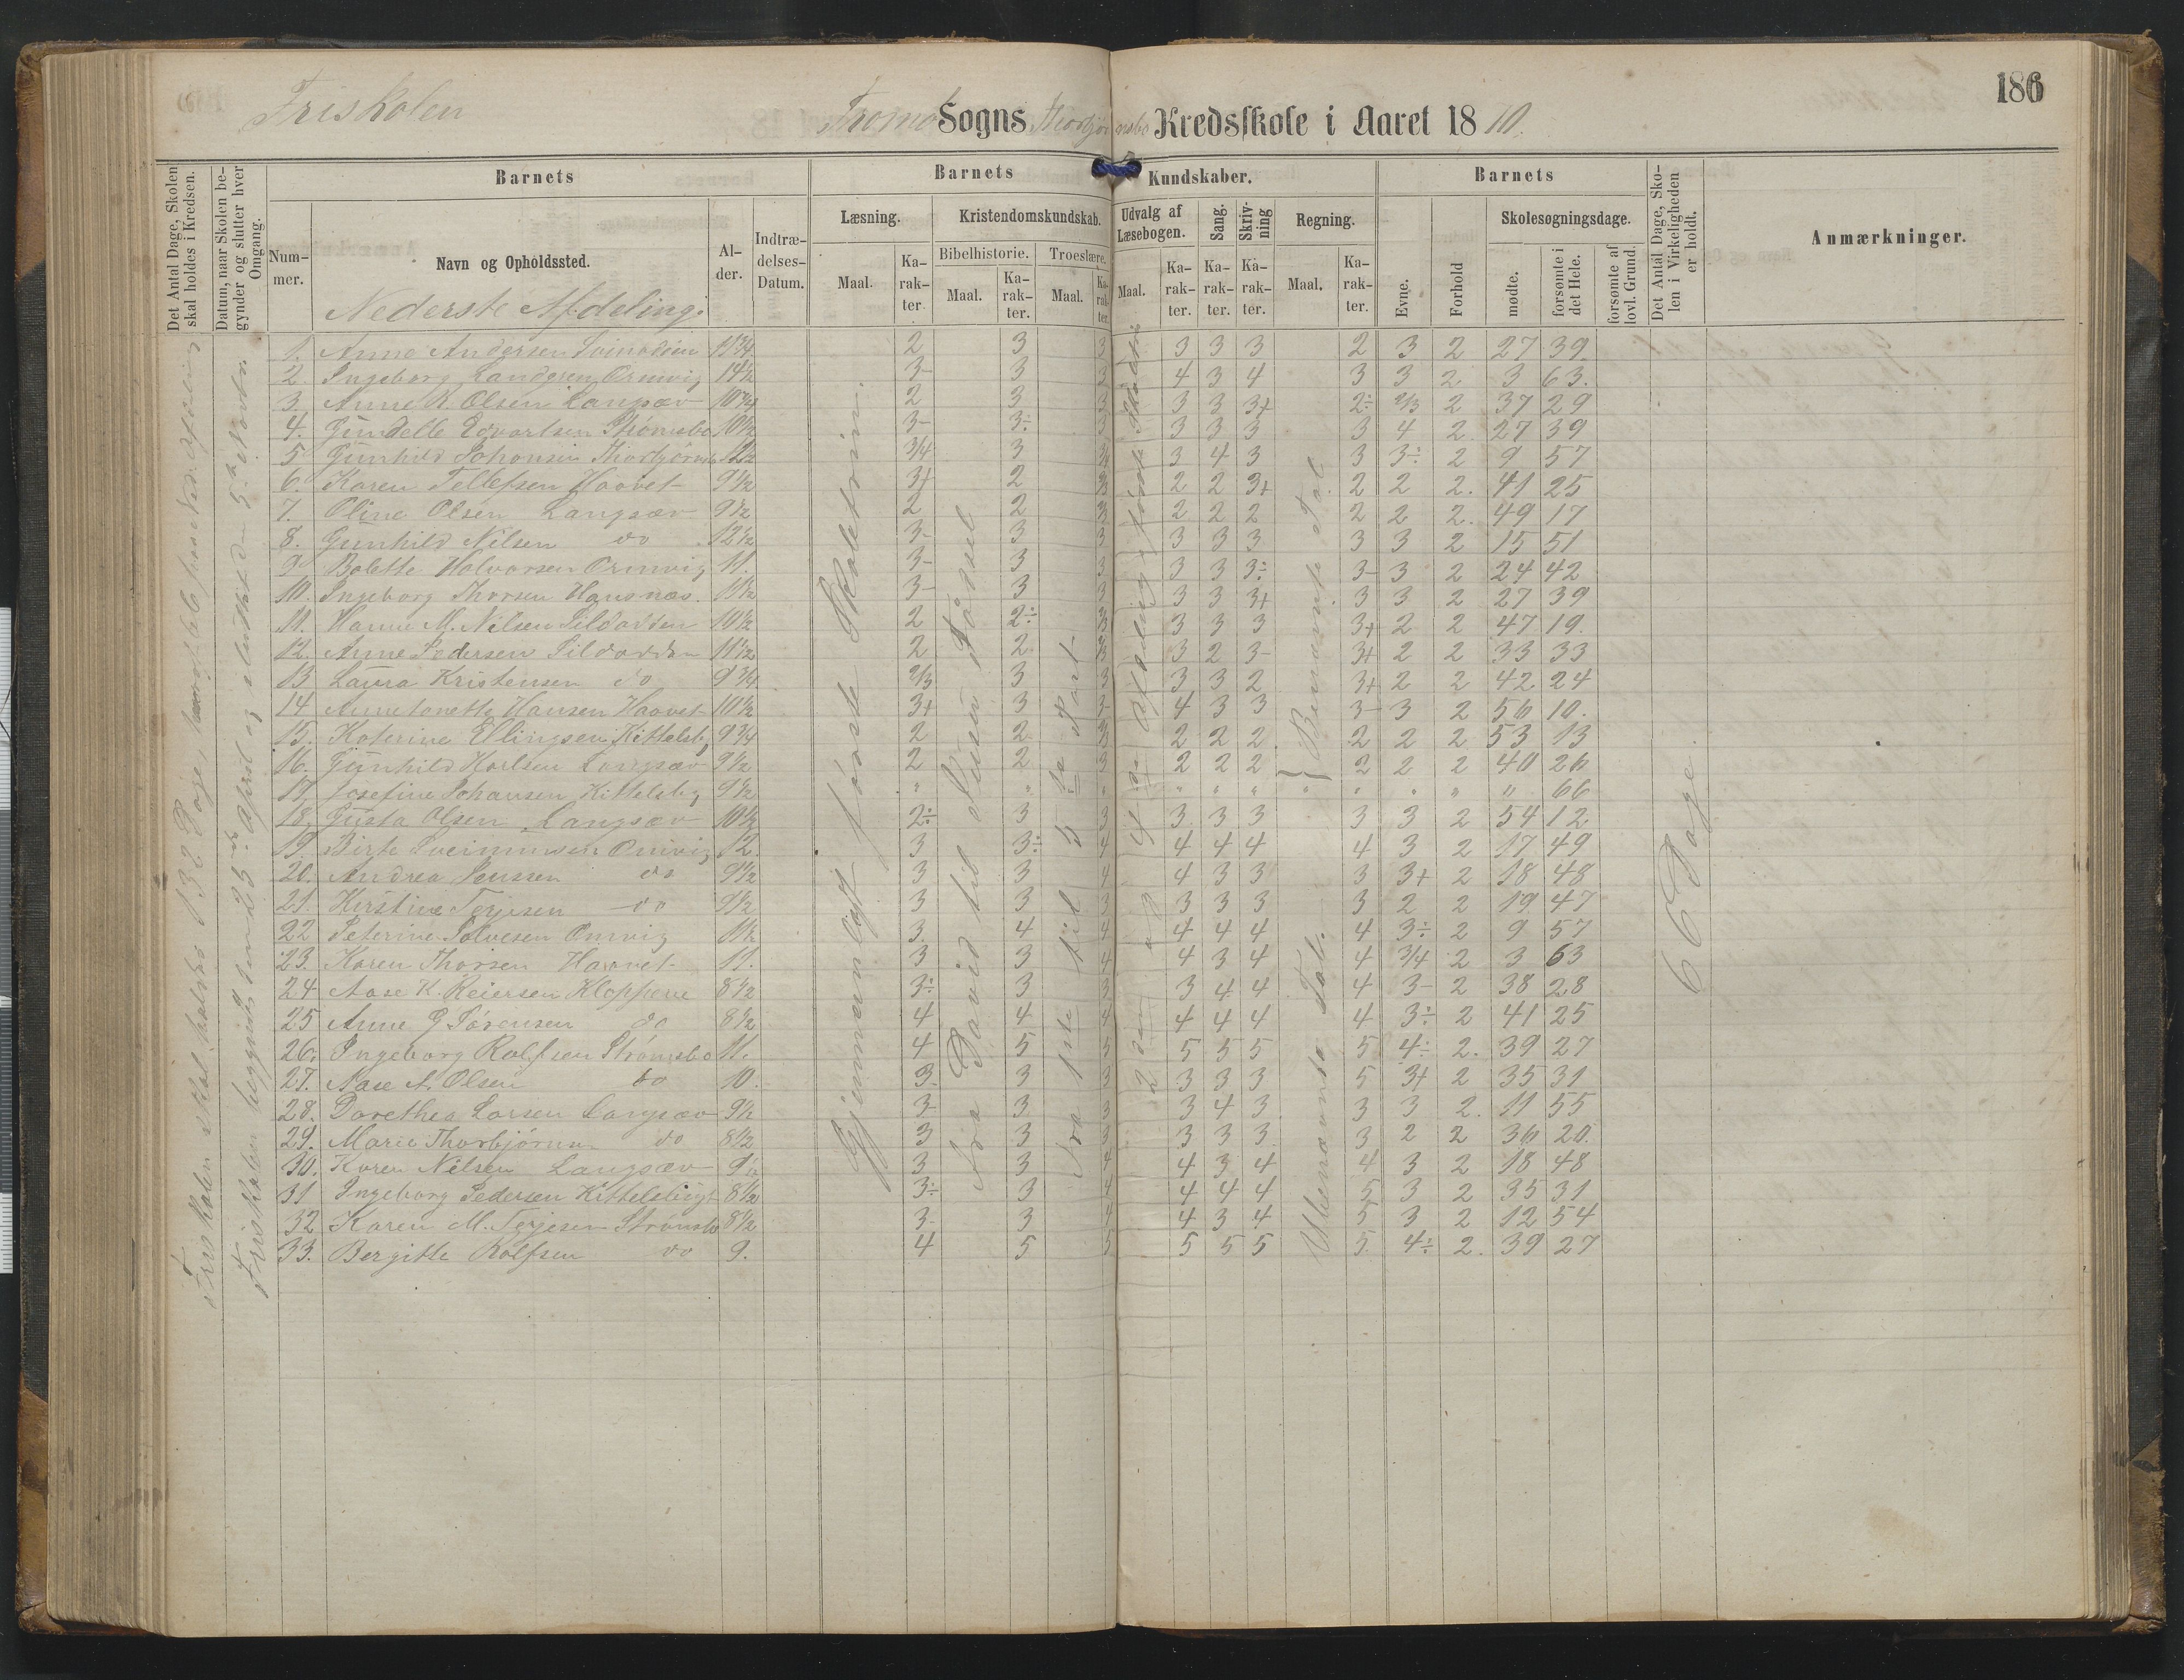 186
Friskolen
Tromø Sogns Thorbjørnsbo Kredsskole i Aaret 1870.
Det Antal Dage, Skolen skal holdes i Kredsen.
Datum, naar Skolen begynder og slutter hver Omgang.
Barnets
Barnets Kundskaber.
Barnets
Det Antal Dage, Skolen i Virkeligheden er holdt.
Anmærkninger.
Nummer.
Navn og Opholdssted.
Alder.
Indtrædelses-Datum.
Læsning.
Kristendomskundskab.
Udvalg af Læsebogen.
Sang.
Skrivning
Regning.
Evne.
Forhold
Skolesøgningsdage.
Bibelhistorie.
Troeslære.
Maal. Karakter. Maal. Karakter. Maal. Karakter. Maal. Karakter. Karakter. Karakter. Maal. Karakter.
mødte. forsømte i det Hele. forsømte af lovl. Grund.
Nederste Afdeling.
1. Anne Andersen 11 3/4 2 3 3 3 3 3 2 3 2 27 39
2. Ingeborg Landgren Omvig 14 1/2 3- 3 3 4 3 4 3 3 2 3 63.
3. Anne K. Olsen Langsæv 10 3/4 2 3 3 3 3 3+ 2÷ 2/3 2 37 29
4. Gundelle Edvartsen Strømsbo 10 1/2 3- 3÷ 3 3 3 3 3 4 2 27 39
5 Gunhild Johansen Thorbjørnsb 12 1/2 3/4 3 3/4 3 4 3 3 3÷ 2 9 57
6. Karen Tellefsen Haavet 9 1/2 3+ 2 2/3 2 2 3+ 2 2 2. 41 25
7. Oline Olsen Langsæv 9 1/2 2 2 2/3 2 2 2 2 2 2. 49 17
8. Gunhild Nilsen do 12 1/2 3- 3 3 3 3 3 3 3 2 15 51
9 Bolette Halvorsen Omvig 11. 3- 3 3 3 3 3÷ 3- 3 2 24 42
10. Ingeborg Thorsen Hausnæs. 11 1/2 3- 3 3 3 3 3+ 3 3 2 27 39
11. Hanne M. Nilsen Sildodden 10 1/2 2 2÷ 2/3 3 3 3 3+ 2 2 47 19.
12. Anne Pedersen Sildodden 11 1/2 2 2 2/3 3 2 3- 3+ 2 2 33 33
13 Laura Kristensen do 9 3/4 2/3 3 3 3 3 2 3+ 2 2 42 24
14 Annetonette Hansen Haavet 10 1/2 3+ 3 3- 4 3 3 3- 3 2 56 10.
15. Katerine Ellingsen Kittelsb. 9 3/4 2 2 2/3 2 2 2 2 2 2 53 13
16. Gunhild Karlsen Langsæv 9 1/2 2 2 3 2 2 2 2 2 2 40 26
17. Josefine Johansen Kittelsby 9 1/2 " " " " " " " " " " 66
18. Gusta Olsen Langsæv 10 1/2 2÷ 3 3 3 3 3 3 3 2 54 12
19. Birte Sveinunsen Omvig 12. 3 3÷ 4 4 4 4 4 3 2 17 49
20. Andrea Jenssen do 9 1/2 3 3 4 4 3 3 3 3+ 2 18 48
21. Kirstine Terjesen do 9 1/2 3 3 3 3 3 3 3 2 2 19 47
22 Peterine Salvesen Omvig 11 1/2 3. 4 4 4 4 4 4 3÷ 2 9 57
23. Karen Thorsen Haavet 11. 3 3 4 4 3 4 4 3/4 2 3 63
24 Aase K. Reiersen Kloppene 8 1/2 3÷ 3 3 3 4 4 4 3- 2 38 28
25 Anne G Sørensen do 8 1/2 4 4 4 4 4 4 4 3÷ 2 41 25
26. Ingeborg Rolfsen Strømsbo 11. 4 5 5 5 5 5 5 4÷ 2. 39 27
27. Aase A. Olsen do 10. 3- 3 3 3 3 3 5 3+ 2 35 31
28. Dorethea Larsen Langsæv 9 1/2 3- 3 3 3 4 3 3 3 2. 11 55
29. Marie Thorbjørnsen do 8 1/2 3 3 3 3 3 3 3 2 2 36 20.
30. Karen Nilsen Langsæv 9 1/2 3 3 4 4 3 4 4 3 2 18 48
31 Ingeborg Pedersen Kittelsbugt 8 1/2 3÷ 3 4 4 4 4 5 3 2 35 31
32 Karen M. Terjesen Strømsbo 8 1/2 3- 3 4 4 3 4 5 3 2 12 54
33. Bergitte Rolfsen do 9. 4 5 5 5 5 5 5 4÷ 2. 39 27
Friskolen skal holdes 132 Dage,
Friskolen begyndte April og sluttede
Gjennemgaaet første Skoletrin.
Fra David til Jesu Fødsel
Fra 1ste til 3die Part
2den og 4de Afdeling, første Skoletrin
Ubenævnte Tal. } Benævnte Tal
66 Dage.